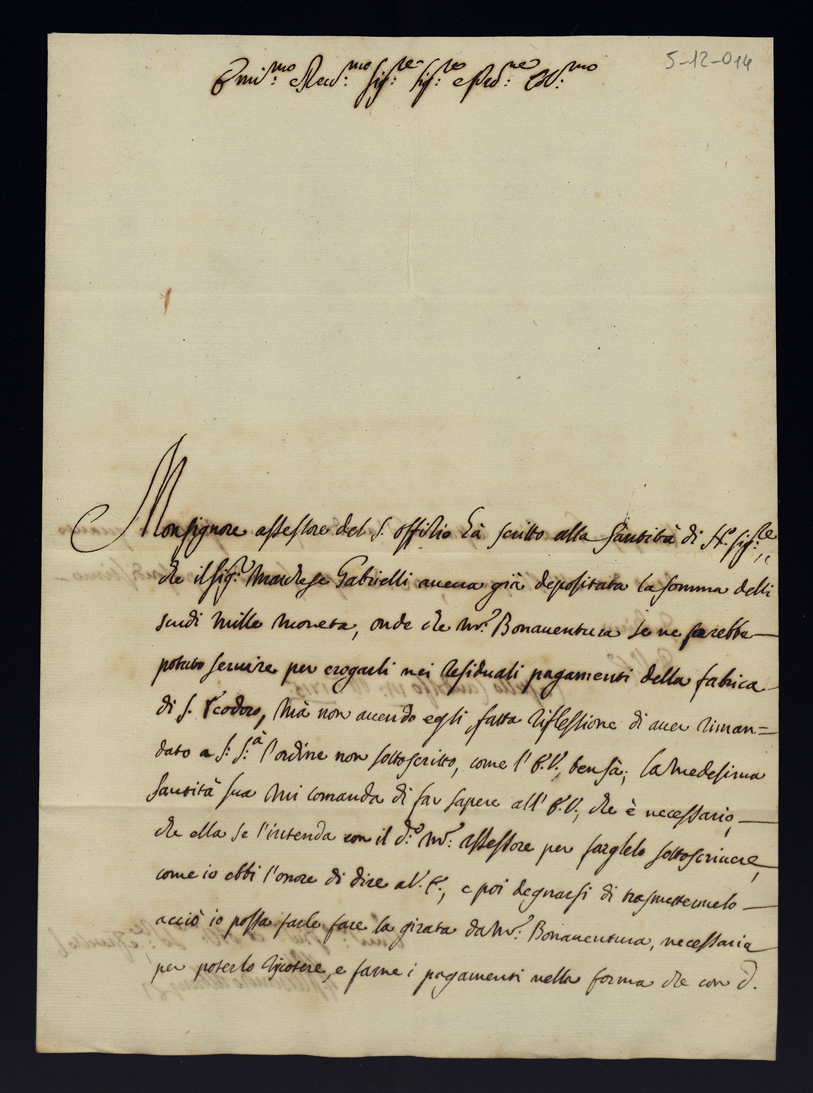 5-12-014
Emi:mo e Reu:mo Sig:re Sig:re e Pad:ne Col:mo
Monsignore assessore del S. Offitio hà scritto alla Santità di N. Sig:re,
che il Sig:r Marchese Gabrielli aueua già depositata la somma delli
scudi mille moneta, onde che Mr. Bonauentura se ne sarebbe
potuto seruire per erogarli nei residuali pagamenti della fabrica
di S. Teodoro, mà non auendo egli fatta riflessione di auer riman=
dato a S: S:à l'ordine non sottoscritto, come l'E.V. ben sà; la medesima
Santità Sua mi comanda di far sapere all'E.V., che è necessario,
che ella se l'intenda con il d.o Mr. assessore per farglelo sottoscriuere,
come io ebbi l'onore di dire a V.E., e poi degnarsi di trasmettermelo
acciò io possa farle fare la girata da Mr. Bonauentura, necessaria
per poterlo riscotere, e farne i pagamenti nella forma che con d.